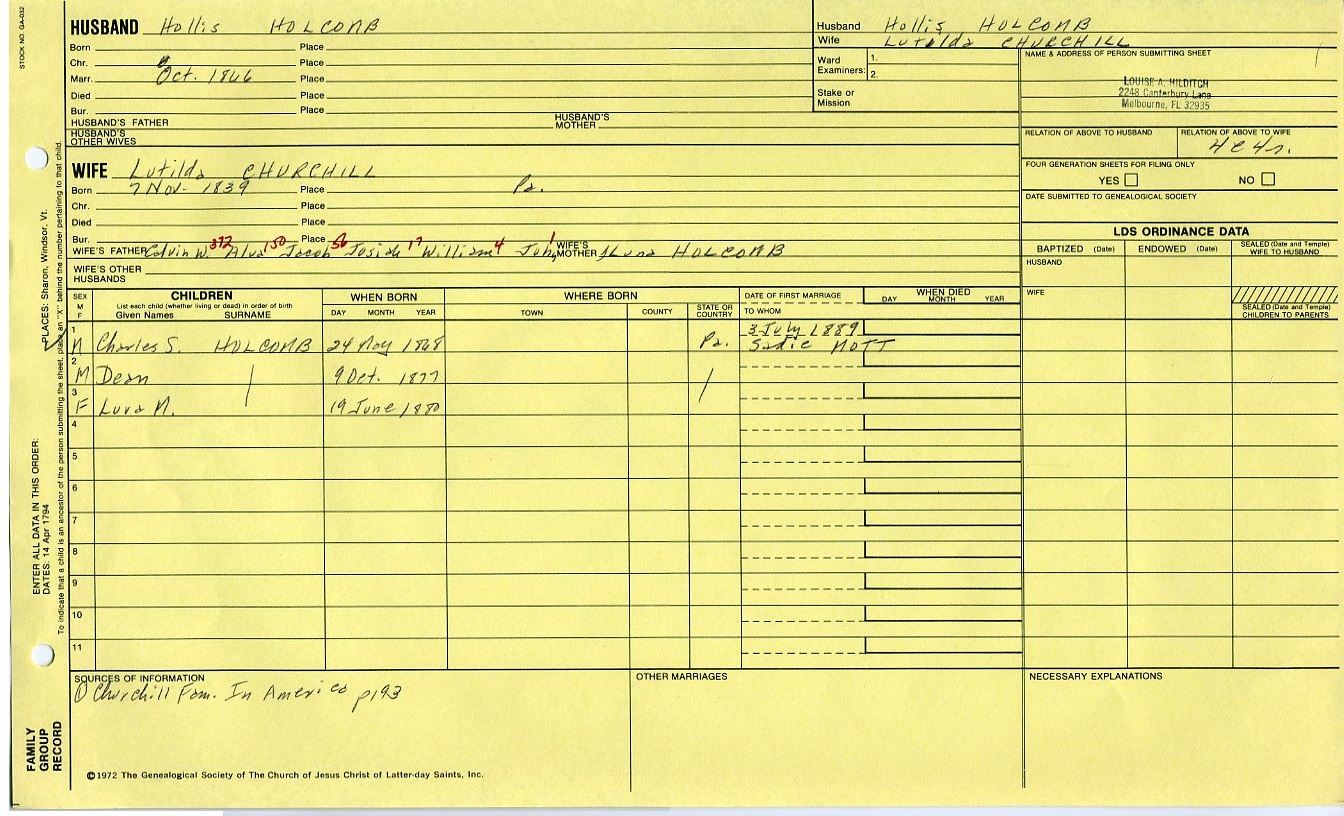 STOCK NO. GA-032
HUSBAND Hollis HOLCOMB
Born Place
Chr. Place
Marr. Oct. 1866 Place
Died Place
Bur. Place
HUSBAND'S FATHER HUSBAND'S MOTHER
HUSBAND'S OTHER WIVES
Husband Hollis HOLCOMB
Wife Lutilda CHURCHILL
Ward Examiners: 1.
2.
Stake or Mission
NAME & ADDRESS OF PERSON SUBMITTING SHEET
LOUISE A. HILDITCH
2248 Canterbury Lane
Melbourne, FL 32935
RELATION OF ABOVE TO HUSBAND RELATION OF ABOVE TO WIFE
4C4r.
FOUR GENERATION SHEETS FOR FILING ONLY
YES NO
DATE SUBMITTED TO GENEALOGICAL SOCIETY
WIFE Lutilda CHURCHILL
Born 7 Nov. 1839 Place Pa.
Chr. Place
Died Place
Bur. Place
WIFE'S FATHER Calvin W. 372 Alva 150 Jacob 56 Josiah 17 William 4 John 1 WIFE'S MOTHER Luna HOLCOMB
WIFE'S OTHER HUSBANDS
LDS ORDINANCE DATA
BAPTIZED (Date) ENDOWED (Date) SEALED (Date and Temple) WIFE TO HUSBAND
HUSBAND
WIFE
SEALED (Date and Temple) CHILDREN TO PARENTS
SEX M F CHILDREN WHEN BORN WHERE BORN DATE OF FIRST MARRIAGE WHEN DIED
List each child (whether living or dead) in order of birth
Given Names SURNAME DAY MONTH YEAR TOWN COUNTY STATE OR COUNTRY TO WHOM DAY MONTH YEAR
1 3 July 1889
M Charles S. HOLCOMB 24 May 1868 Pa. Sadie MOTT
2
M Dean 9 Oct. 1877
3
F Luva M. 19 June 1880
4
5
6
7
8
9
10
11
SOURCES OF INFORMATION OTHER MARRIAGES NECESSARY EXPLANATIONS
① Churchill Fam. In America p193
©1972 The Genealogical Society of The Church of Jesus Christ of Latter-day Saints, Inc.
FAMILY GROUP RECORD
ENTER ALL DATA IN THIS ORDER:
DATES: 14 Apr 1794 PLACES: Sharon, Windsor, Vt.
To indicate that a child is an ancestor of the person submitting the sheet, place an "X" behind the number pertaining to that child.